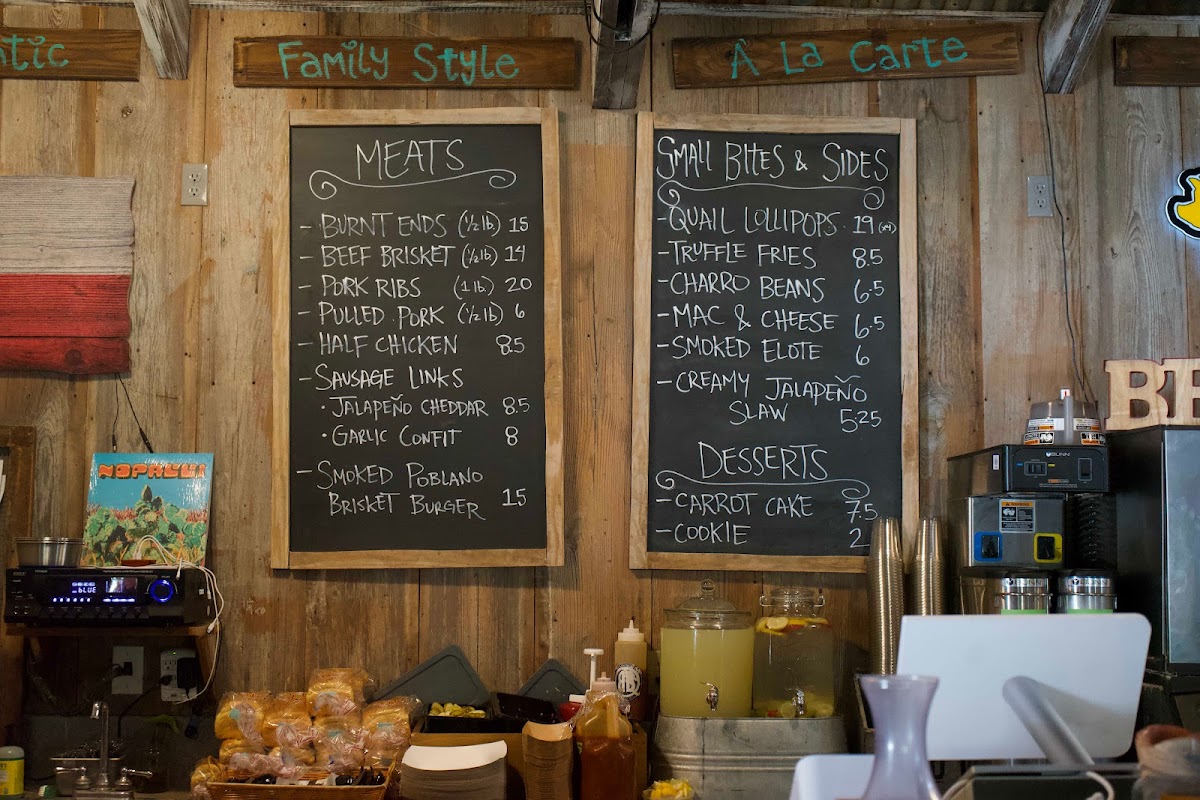 ntic
Family Style
À La Carte
MEATS
- BURNT ENDS (1/2 lb) 15
- BEEF BRISKET (1/2 lb) 14
- PORK RIBS (1 lb.) 20
- PULLED PORK (1/2 lb) 6
- HALF CHICKEN 8.5
- SAUSAGE LINKS
• JALAPEÑO CHEDDAR 8.5
• GARLIC CONFIT 8
- SMOKED POBLANO
BRISKET BURGER 15
SMALL BITES & SIDES
- QUAIL LOLLIPOPS 19 (x4)
- TRUFFLE FRIES 8.5
- CHARRO BEANS 6.5
- MAC & CHEESE 6.5
- SMOKED ELOTE 6
- CREAMY JALAPEÑO
SLAW 5.25
DESSERTS
- CARROT CAKE 7.5
- COOKIE 2
NOPALLI
BLUE
BUNN